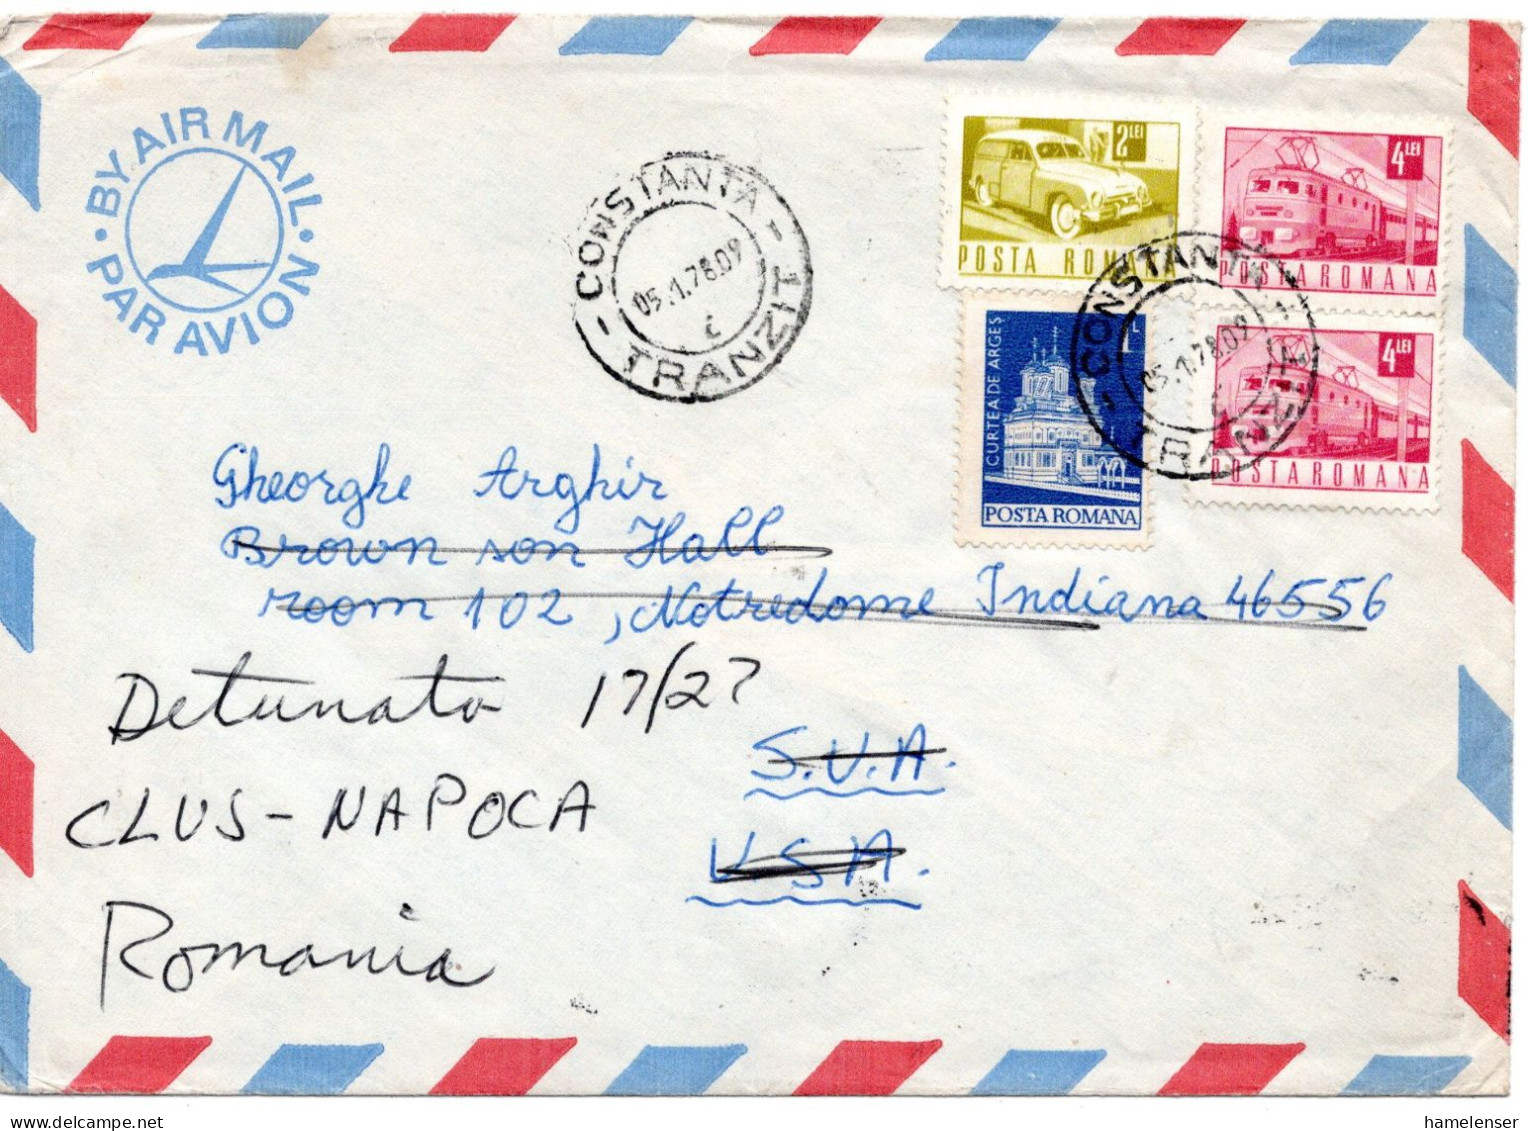 BY AIR MAIL
PAR AVION
CONSTANTA
05.1.78.09
c
TRANZIT
2 LEI
POSTA ROMANA
4 LEI
POSTA ROMANA
1 L
CURTEA DE ARGEȘ
POSTA ROMANA
4 LEI
POSTA ROMANA
CONSTANTA
05.1.78.09
c
TRANZIT
Gheorghe Arghir
Brown son Hall
room 102, Notredome Indiana 46556
Detunata 17/27
S.U.A.
CLUS-NAPOCA
USA.
Romania
hamelenser